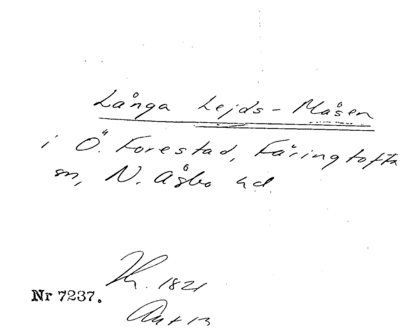 Långa Lejds-Måsen
i Ö. Forestad, Färingtofta
sn, N. Åsbo hd.
Kr. 1821
Nr 7237.